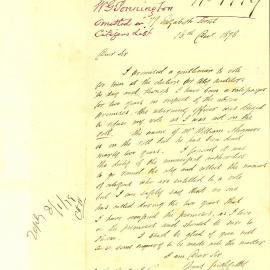 W G Pennington
Omitted in
Citizens List
Elizabeth Street
1876
Dear Sir
I promised a gentleman to vote
for him at the election for the auditors
to day and though I have been a ratepayer
for two years in respect of the above
premises the returning officer was obliged
to refuse my vote as I was not on the
roll. The name of Mr William
is on the roll but he has been dead
nearly two years. I presume it was
the duty of the municipal authorities
to go round the city and collect the names
of citizens who are entitled to a vote
but I can safely say that no one
has called during the two years that
I have occupied the premises, as I live
on the premises and should be sure to
know. I shall be glad if you will
cause some inquiry to be made into the matter
I am Dear Sir
Yours faithfully